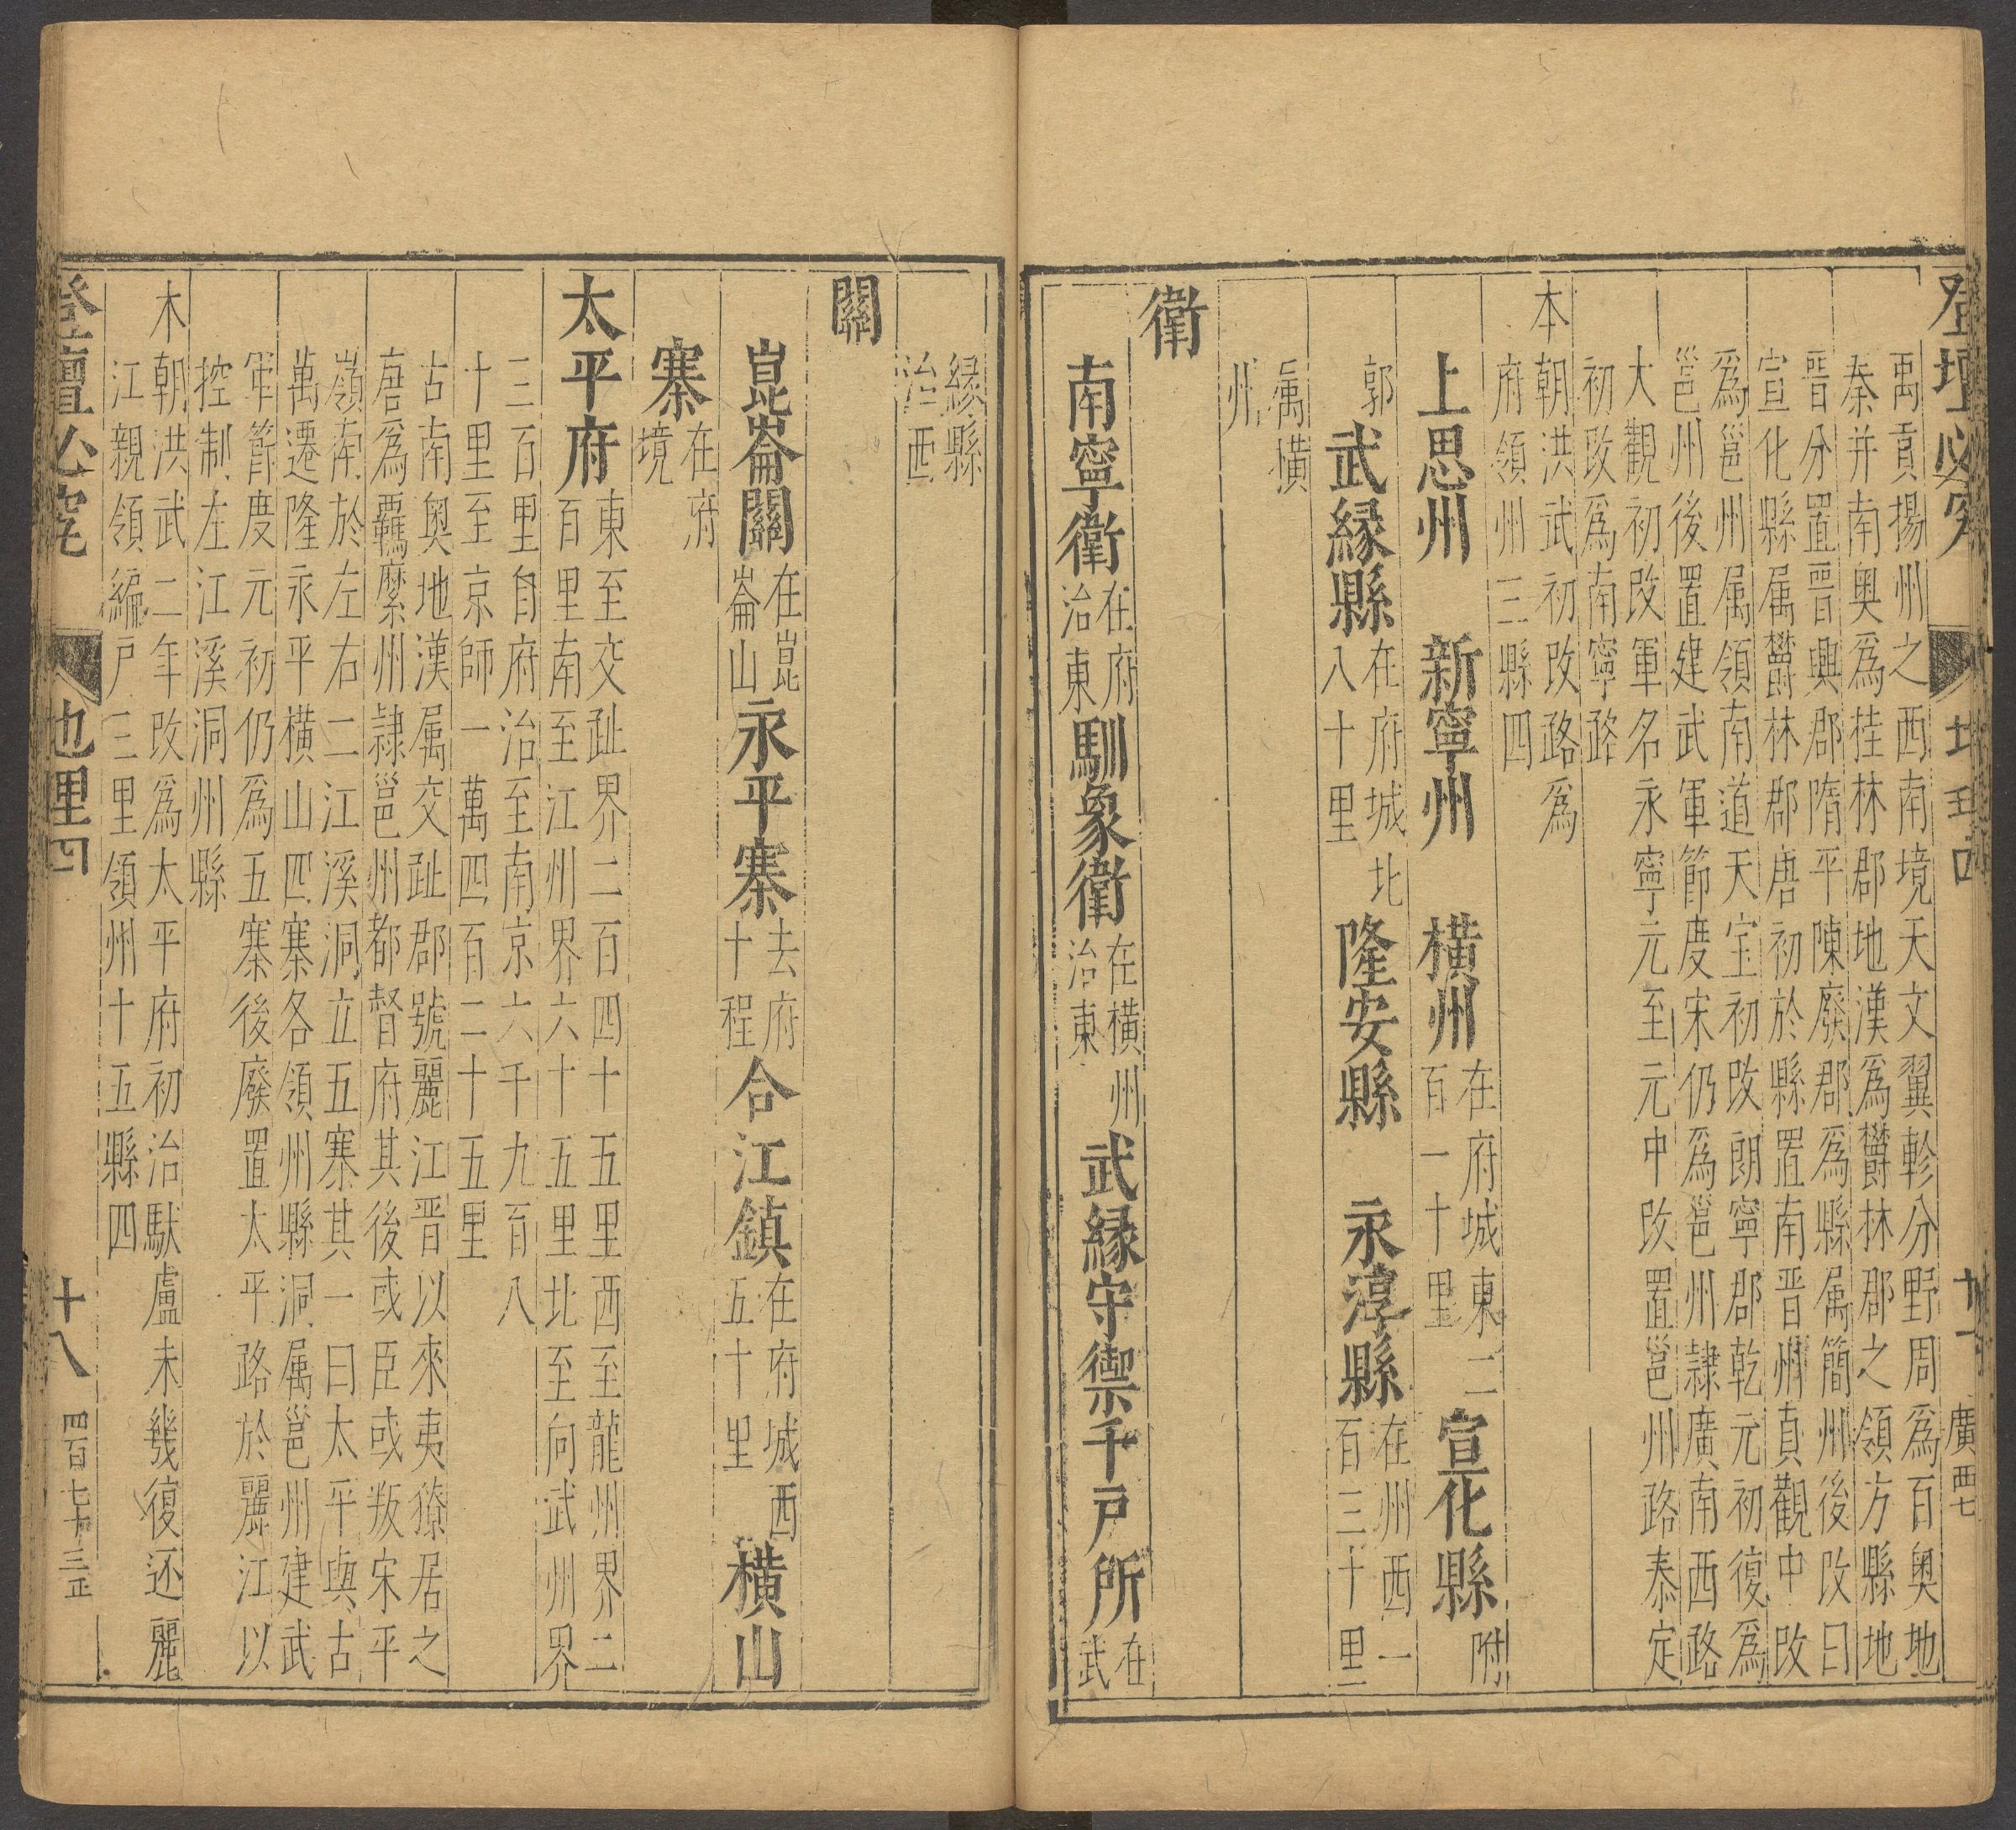 登壇必究
廣西七
禹貢揚州之西南境天文翼軫分野周爲百奧地
秦并南奥爲桂林郡地漢爲欝林郡之領方縣地
晋分置晋興郡隋平陳廢郡爲縣属簡州後改曰
宣化縣属欝林郡唐初於縣置南晋州貞觀中改
爲邕州属領南道天宝初改朗寧郡乾元初復爲
邕州後置建武軍節度宋仍爲邕州隷廣南西路
大觀初改軍名永寧元至元中改置邕州路泰定
初改爲南寧路
本朝洪武初改路爲
府領州三縣四
上思州 新寧州 橫州在府城東二百一十里宣化縣附
郭武緣縣在府城北八十里隆安縣 永淳縣在州西一百三十里
属橫州
衛
南寧衛在府治東馴象衛在橫州治東武緣守禦千戸所在武
緣縣治西
關
崑崙關在崑崙山永平寨去府十程合江鎮在府城西五十里橫山
寨在府境
太平府東至交趾界二百四十五里西至龍州界二
百里南至江州界六十五里北至向武州界
三百里自府治至南京六千九百八
十里至京師一萬四百二十五里
古南奥地漢属交趾郡號麗江晋以來夷獠居之
唐爲羈縻州隷邕州都督府其後或臣或叛宋平
嶺南於左右二江溪洞立五寨其一曰太平與古
萬遷隆永平橫山四寨各領州縣洞属邕州建武
軍節度元初仍爲五寨後廢置太平路於麗江以
控制左江溪洞州縣
木朝洪武二年改爲太平府初治馱盧未幾復还麗
江親領編戸三里領州十五縣四
登壇必究
地理四
十八
四百七十三正